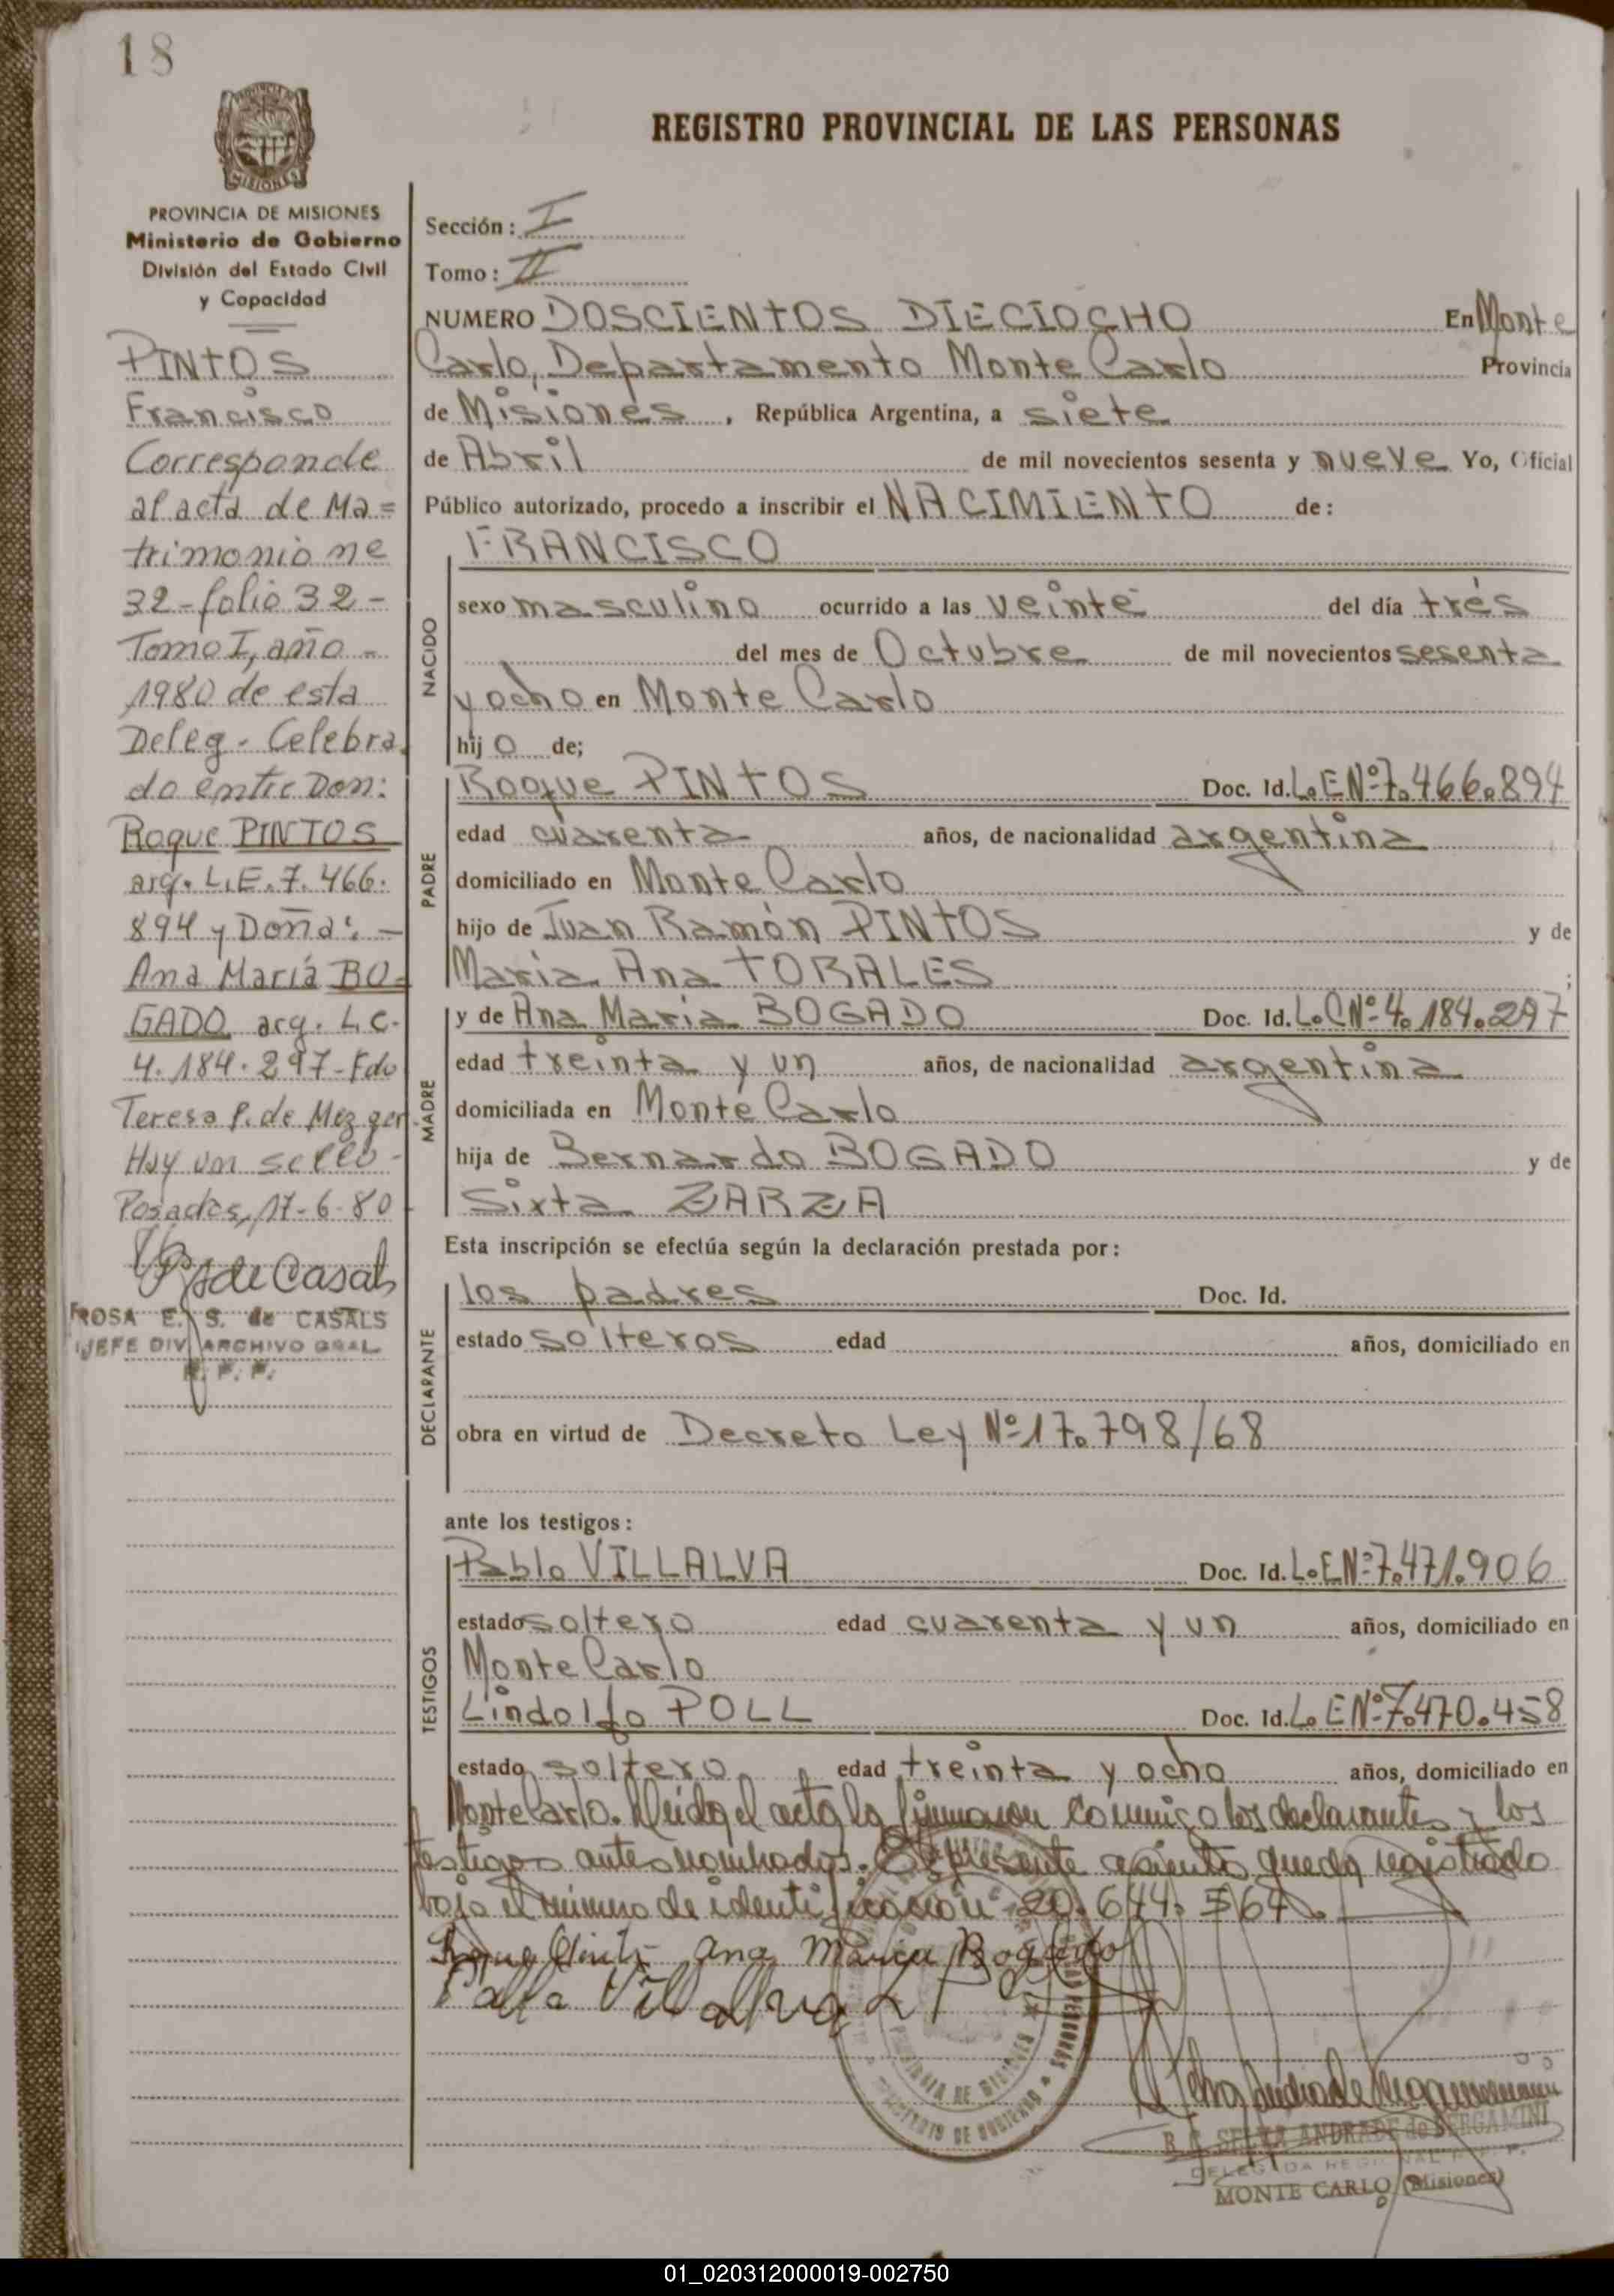 18
REGISTRO PROVINCIAL DE LAS PERSONAS
PROVINCIA DE
MISIONES
PROVINCIA DE MISIONES
Ministerio de Gobierno
División del Estado Civil
y Capacidad
PINTOS
Francisco
Corresponde
al acta de Ma=
trimonio nº
32-folio 32-
Tomo I, año -
1980 de esta
Deleg. Celebra
do entre Don:
Roque PINTOS
arg. L.E. 7.466.
894 y Doña: -
Ana María BO=
GADO arg. L.C.
4.184.297-Fdo
Teresa P. de Mezger
Hay un sello-
Posadas, 17-6-80
de Casals
ROSA E. S. de CASALS
JEFE DIV ARCHIVO GRAL
Sección: I
Tomo: II
NUMERO DOSCIENTOS DIECIOCHO En Monte
Carlo, Departamento Monte Carlo Provincia
de Misiones, República Argentina, a siete
de Abril de mil novecientos sesenta y nueve Yo, Oficial
Público autorizado, procedo a inscribir el NACIMIENTO de:
NACIDO
FRANCISCO
sexo masculino ocurrido a las veinte del día tres
del mes de Octubre de mil novecientos sesenta
y ocho en Monte Carlo
hijo de;
PADRE
Roque PINTOS Doc. Id. L.E Nº 7.466.894
edad cuarenta años, de nacionalidad argentina
domiciliado en Monte Carlo
hijo de Juan Ramón PINTOS y de
Maria Ana TORALES ;
MADRE
y de Ana Maria BOGADO Doc. Id. L.C Nº 4.184.297
edad treinta y un años, de nacionalidad argentina
domiciliada en Monte Carlo
hija de Bernardo BOGADO y de
Sixta ZARZA
Esta inscripción se efectúa según la declaración prestada por:
DECLARANTE
los padres Doc. Id.
estado solteros edad años, domiciliado en
obra en virtud de Decreto Ley Nº 17.798/68
ante los testigos:
TESTIGOS
Pablo VILLALVA Doc. Id. L.E Nº 7.471.906
estado soltero edad cuarenta y un años, domiciliado en
Monte Carlo
Lindolfo POLL Doc. Id. L. E Nº 7.470.458
estado soltero edad treinta y ocho años, domiciliado en
Monte Carlo. Leida el acta la firmaron conmigo los declarantes y los
testigos antes nombrados. El presente asiento queda registrado
bajo el número de identificación 20.644.564.
Ana Maria Bogado
Villalva
PROVINCIA DE MISIONES
MINISTERIO DE GOBIERNO
PERSONAS
B. C. SELVA ANDRADE de BERGAMINI
DELEGADA REGIONAL
MONTE CARLO (Misiones)
01_020312000019-002750